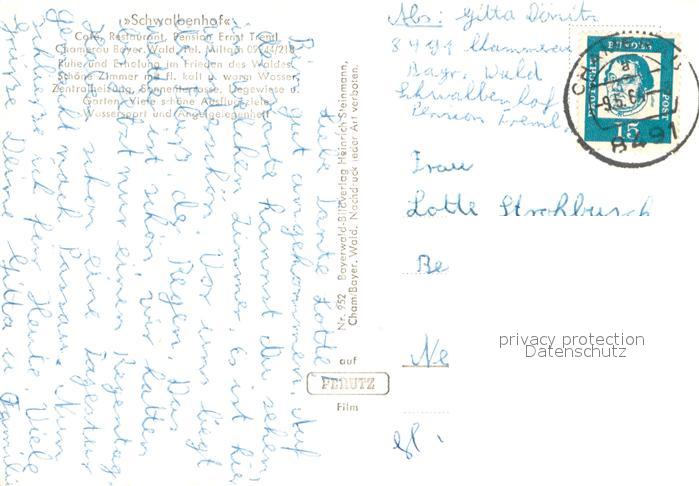 »Schwalbenhof«
Café, Restaurant, Pension Ernst Treml
Chamerau Bayer. Wald, Tel. Miltach 09944/218
Ruhe und Erholung im Frieden des Waldes
Schöne Zimmer mit fl. kalt u. warm Wasser
Zentralheizung, Sonnenterrasse, Liegewiese u.
Garten. Viele schöne Ausflugsziele
Wassersport und Angelgelegenheit
Liebe Tante Lotte!
Bin gut angekommen. Auf
der Karte kannst du sehen,
Zimmer. Es ist hier
schön. Vor uns liegt
der Regen. Das
ist schön wir hatten
nur einen Regentag.
schon eine Tagestour
gemacht nach Passau. Nun
schliesse ich für Heute. Viele
Grüsse Deine Gitta u. Familie
Nr. 952 Bayerwald-Bildverlag Heinrich Steinmann,
Cham/Bayer. Wald. Nachdruck jeder Art verboten.
auf
PERUTZ
Film
Abs: Gitta
8491 Chamerau
Bayr. Wald
Schwalbenhof
Pension Treml
DEUTSCHE
BUNDES
POST
15
8491
Frau
Lotte Strohbusch
Be
Ne
privacy protection
Datenschutz